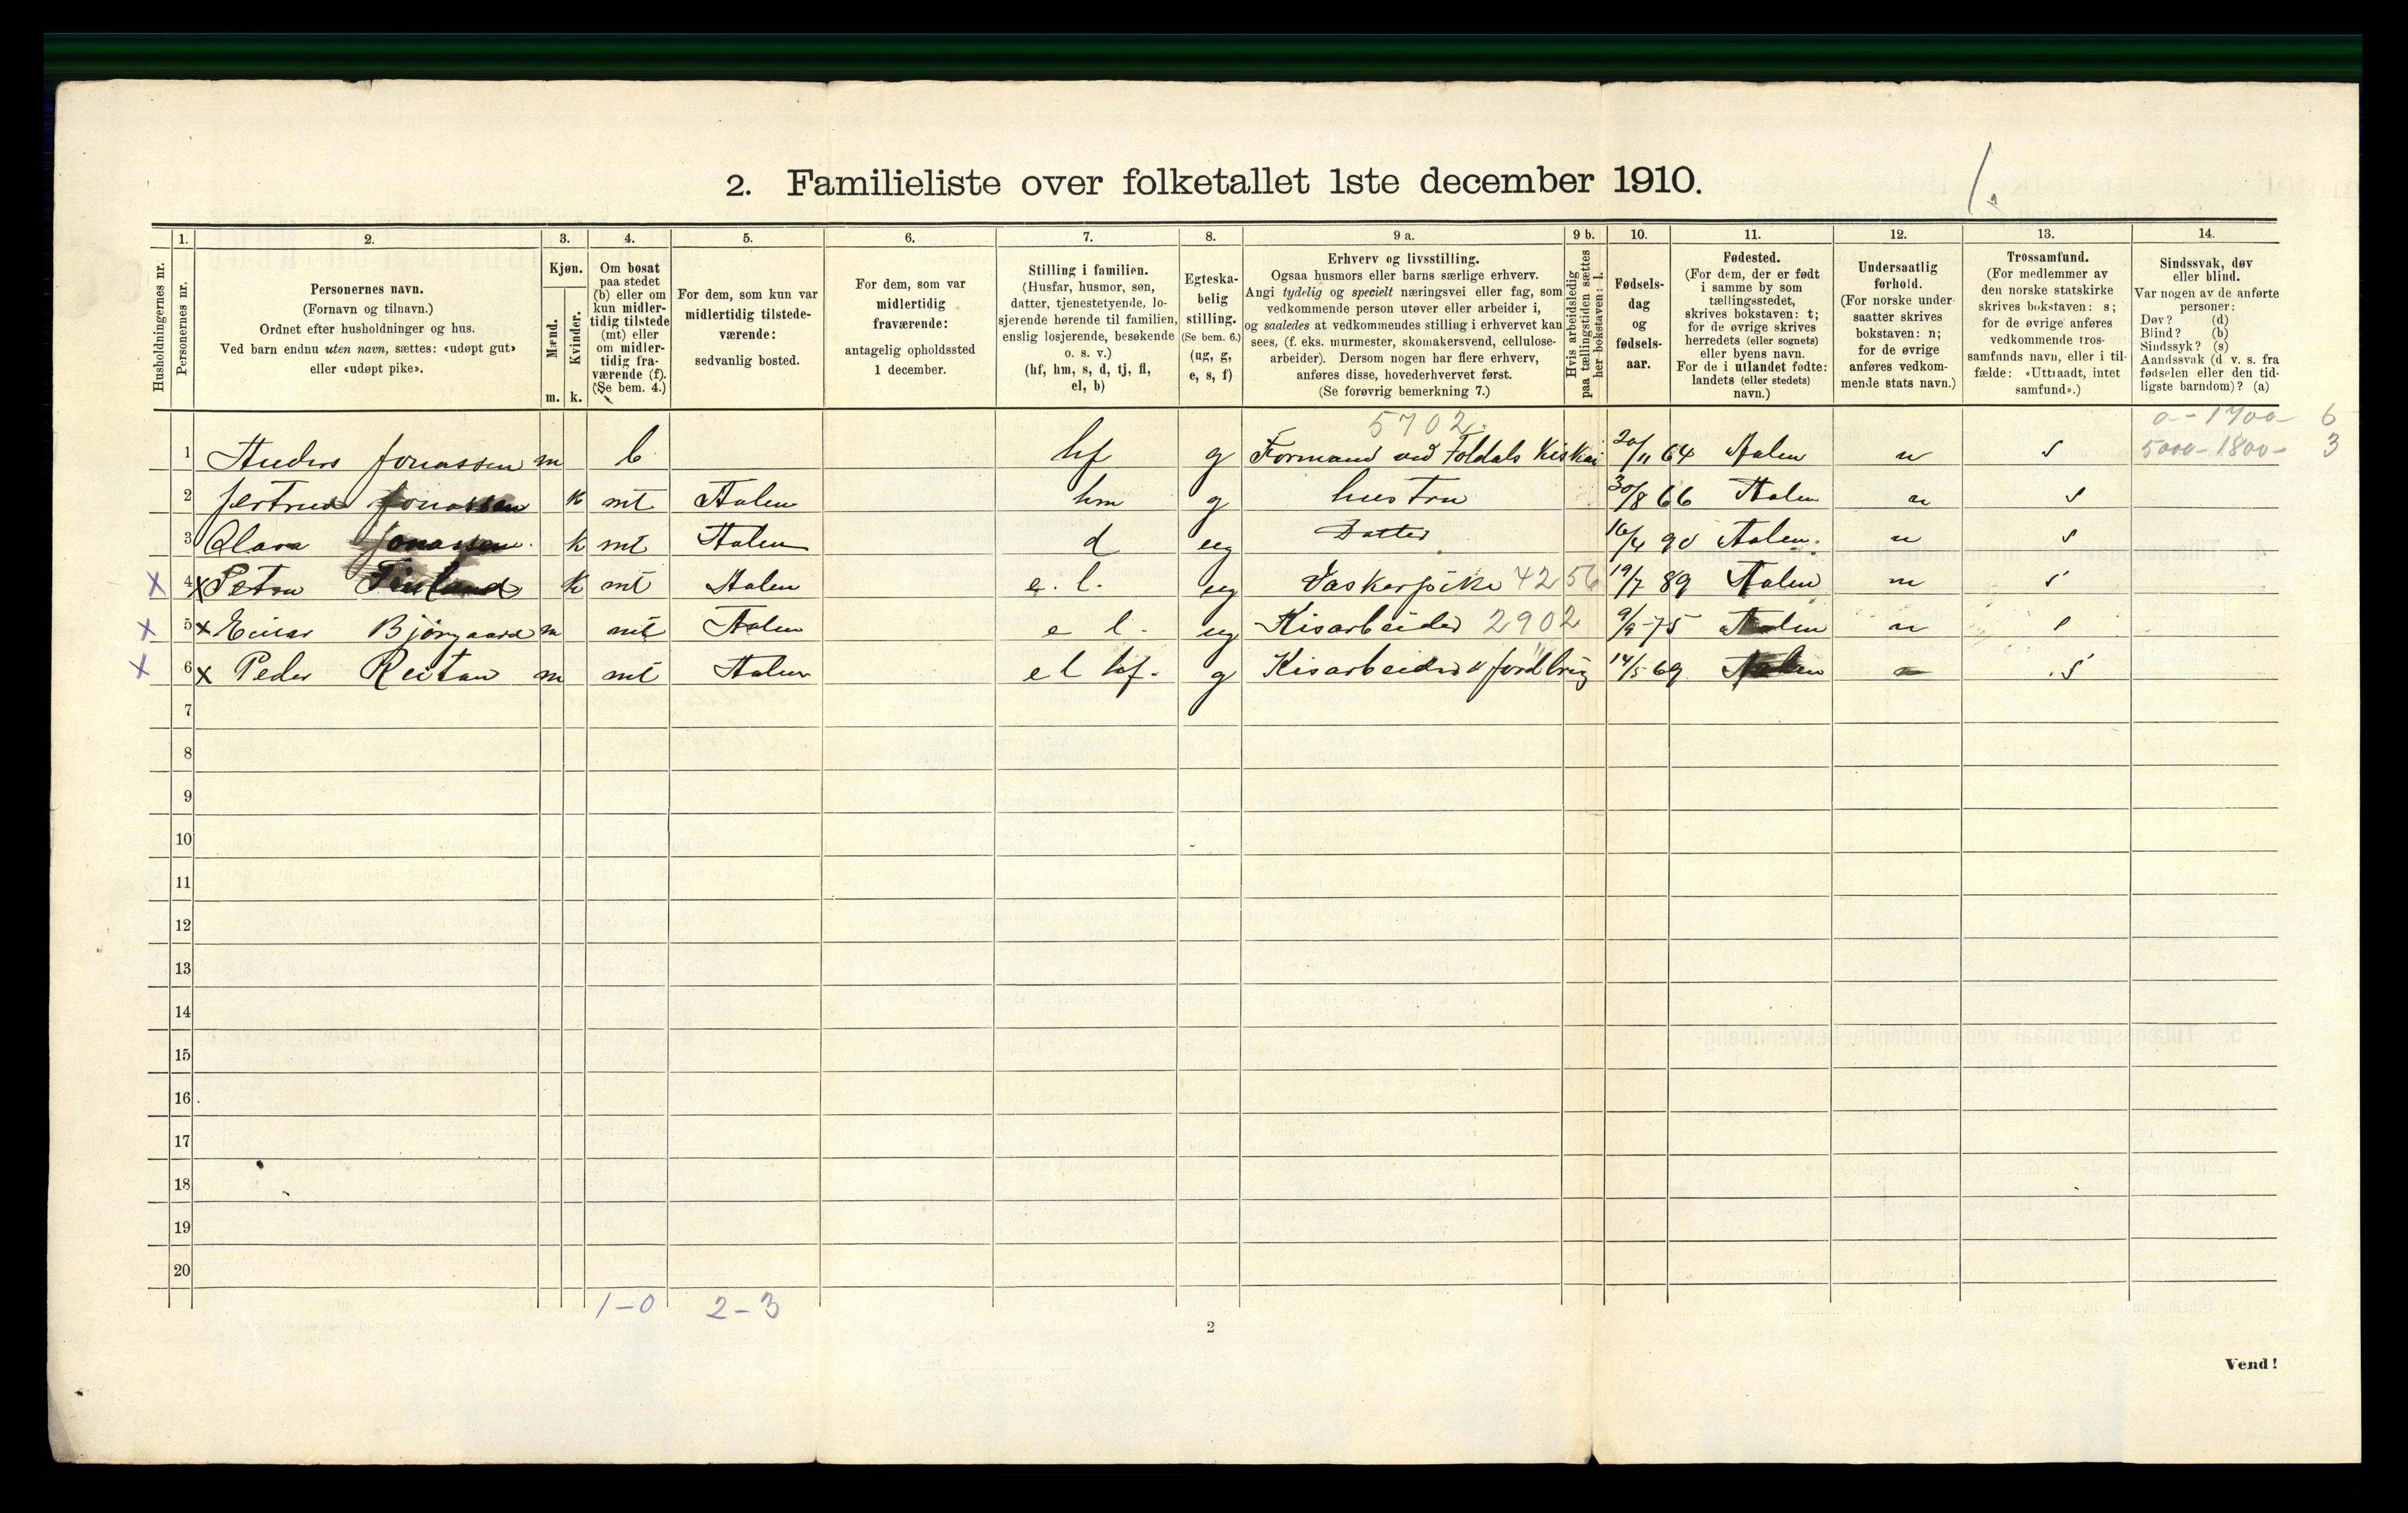 2. Familieliste over folketallet 1ste december 1910.
1.
1. 2. 3. 4. 5. 6. 7. 8. 9 a. 9 b. 10. 11. 12. 13. 14.
Husholdningernes nr.
Personernes nr.
Personernes navn.
(Fornavn og tilnavn.)
Ordnet efter husholdninger og hus.
Ved barn endnu uten navn, sættes: «udøpt gut»
eller «udøpt pike».
Kjøn.
Mænd.
Kvinder.
m. k.
Om bosat
paa stedet
(b) eller om
kun midler-
tidig tilstede
(mt) eller
om midler-
tidig fra-
værende (f).
(Se bem. 4.)
For dem, som kun var
midlertidig tilstede-
værende:
sedvanlig bosted.
For dem, som var
midlertidig
fraværende:
antagelig opholdssted
1 december.
Stilling i familien.
(Husfar, husmor, søn,
datter, tjenestetyende, lo-
sjerende hørende til familien,
enslig losjerende, besøkende
o. s. v.)
(hf, hm, s, d, tj, fl,
el, b)
Egteska-
belig
stilling.
(Se bem. 6.)
(ug, g,
e, s, f)
Erhverv og livsstilling.
Ogsaa husmors eller barns særlige erhverv.
Angi tydelig og specielt næringsvei eller fag, som
vedkommende person utøver eller arbeider i,
og saaledes at vedkommendes stilling i erhvervet kan
sees, (f. eks. murmester, skomakersvend, cellulose-
arbeider). Dersom nogen har flere erhverv,
anføres disse, hovederhvervet først.
(Se forøvrig bemerkning 7.)
Hvis arbeidsledig
paa tællingstiden sættes
her bokstaven: l.
Fødsels-
dag
og
fødsels-
aar.
Fødested.
(For dem, der er født
i samme by som
tællingsstedet,
skrives bokstaven: t;
for de øvrige skrives
herredets (eller sognets)
eller byens navn.
For de i utlandet fødte:
landets (eller stedets)
navn.)
Undersaatlig
forhold.
(For norske under-
saatter skrives
bokstaven: n;
for de øvrige
anføres vedkom-
mende stats navn.)
Trossamfund.
(For medlemmer av
den norske statskirke
skrives bokstaven: s;
for de øvrige anføres
vedkommende tros-
samfunds navn, eller i til-
fælde: «Uttraadt, intet
samfund».)
Sindssvak, døv
eller blind.
Var nogen av de anførte
personer:
Døv? (d)
Blind? (b)
Sindssyk? (s)
Aandssvak (d. v. s. fra
fødselen eller den tid-
ligste barndom)? (a)
5702. 0-1700- 6
1 Anders Jonassen m b hf g Formand ved Foldals Kis 20/11 64 Aalen n s 5000-1800- 3
2 Jertrud Jonassen k mt Aalen hm g hustru 30/8 66 Aalen n s
3 Clara Jonassen k mt Aalen d ug Datter 16/4 90 Aalen n s
x 4 x Petra Finland k mt Aalen e. l. ug Vaskerpike 42 56 19/7 89 Aalen n s
x 5 x Einar Bjørgaard m mt Aalen e l. ug Kisarbeider 2902 9/9 75 Aalen n s
x 6 x Peder Reitan m mt Aalen e l hf. g Kisarbeider " jordbrug 14/5 69 Aalen n s
7
8
9
10
11
12
13
14
15
16
17
18
19
20
1-0 2-3
2
Vend!